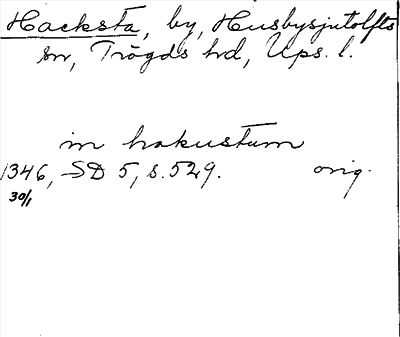 Hacksta, by, Husbysjutolfts
sn, Trögds hd, Ups. l.
in hakustum
1346, SD 5, s. 529. orig.
30/1